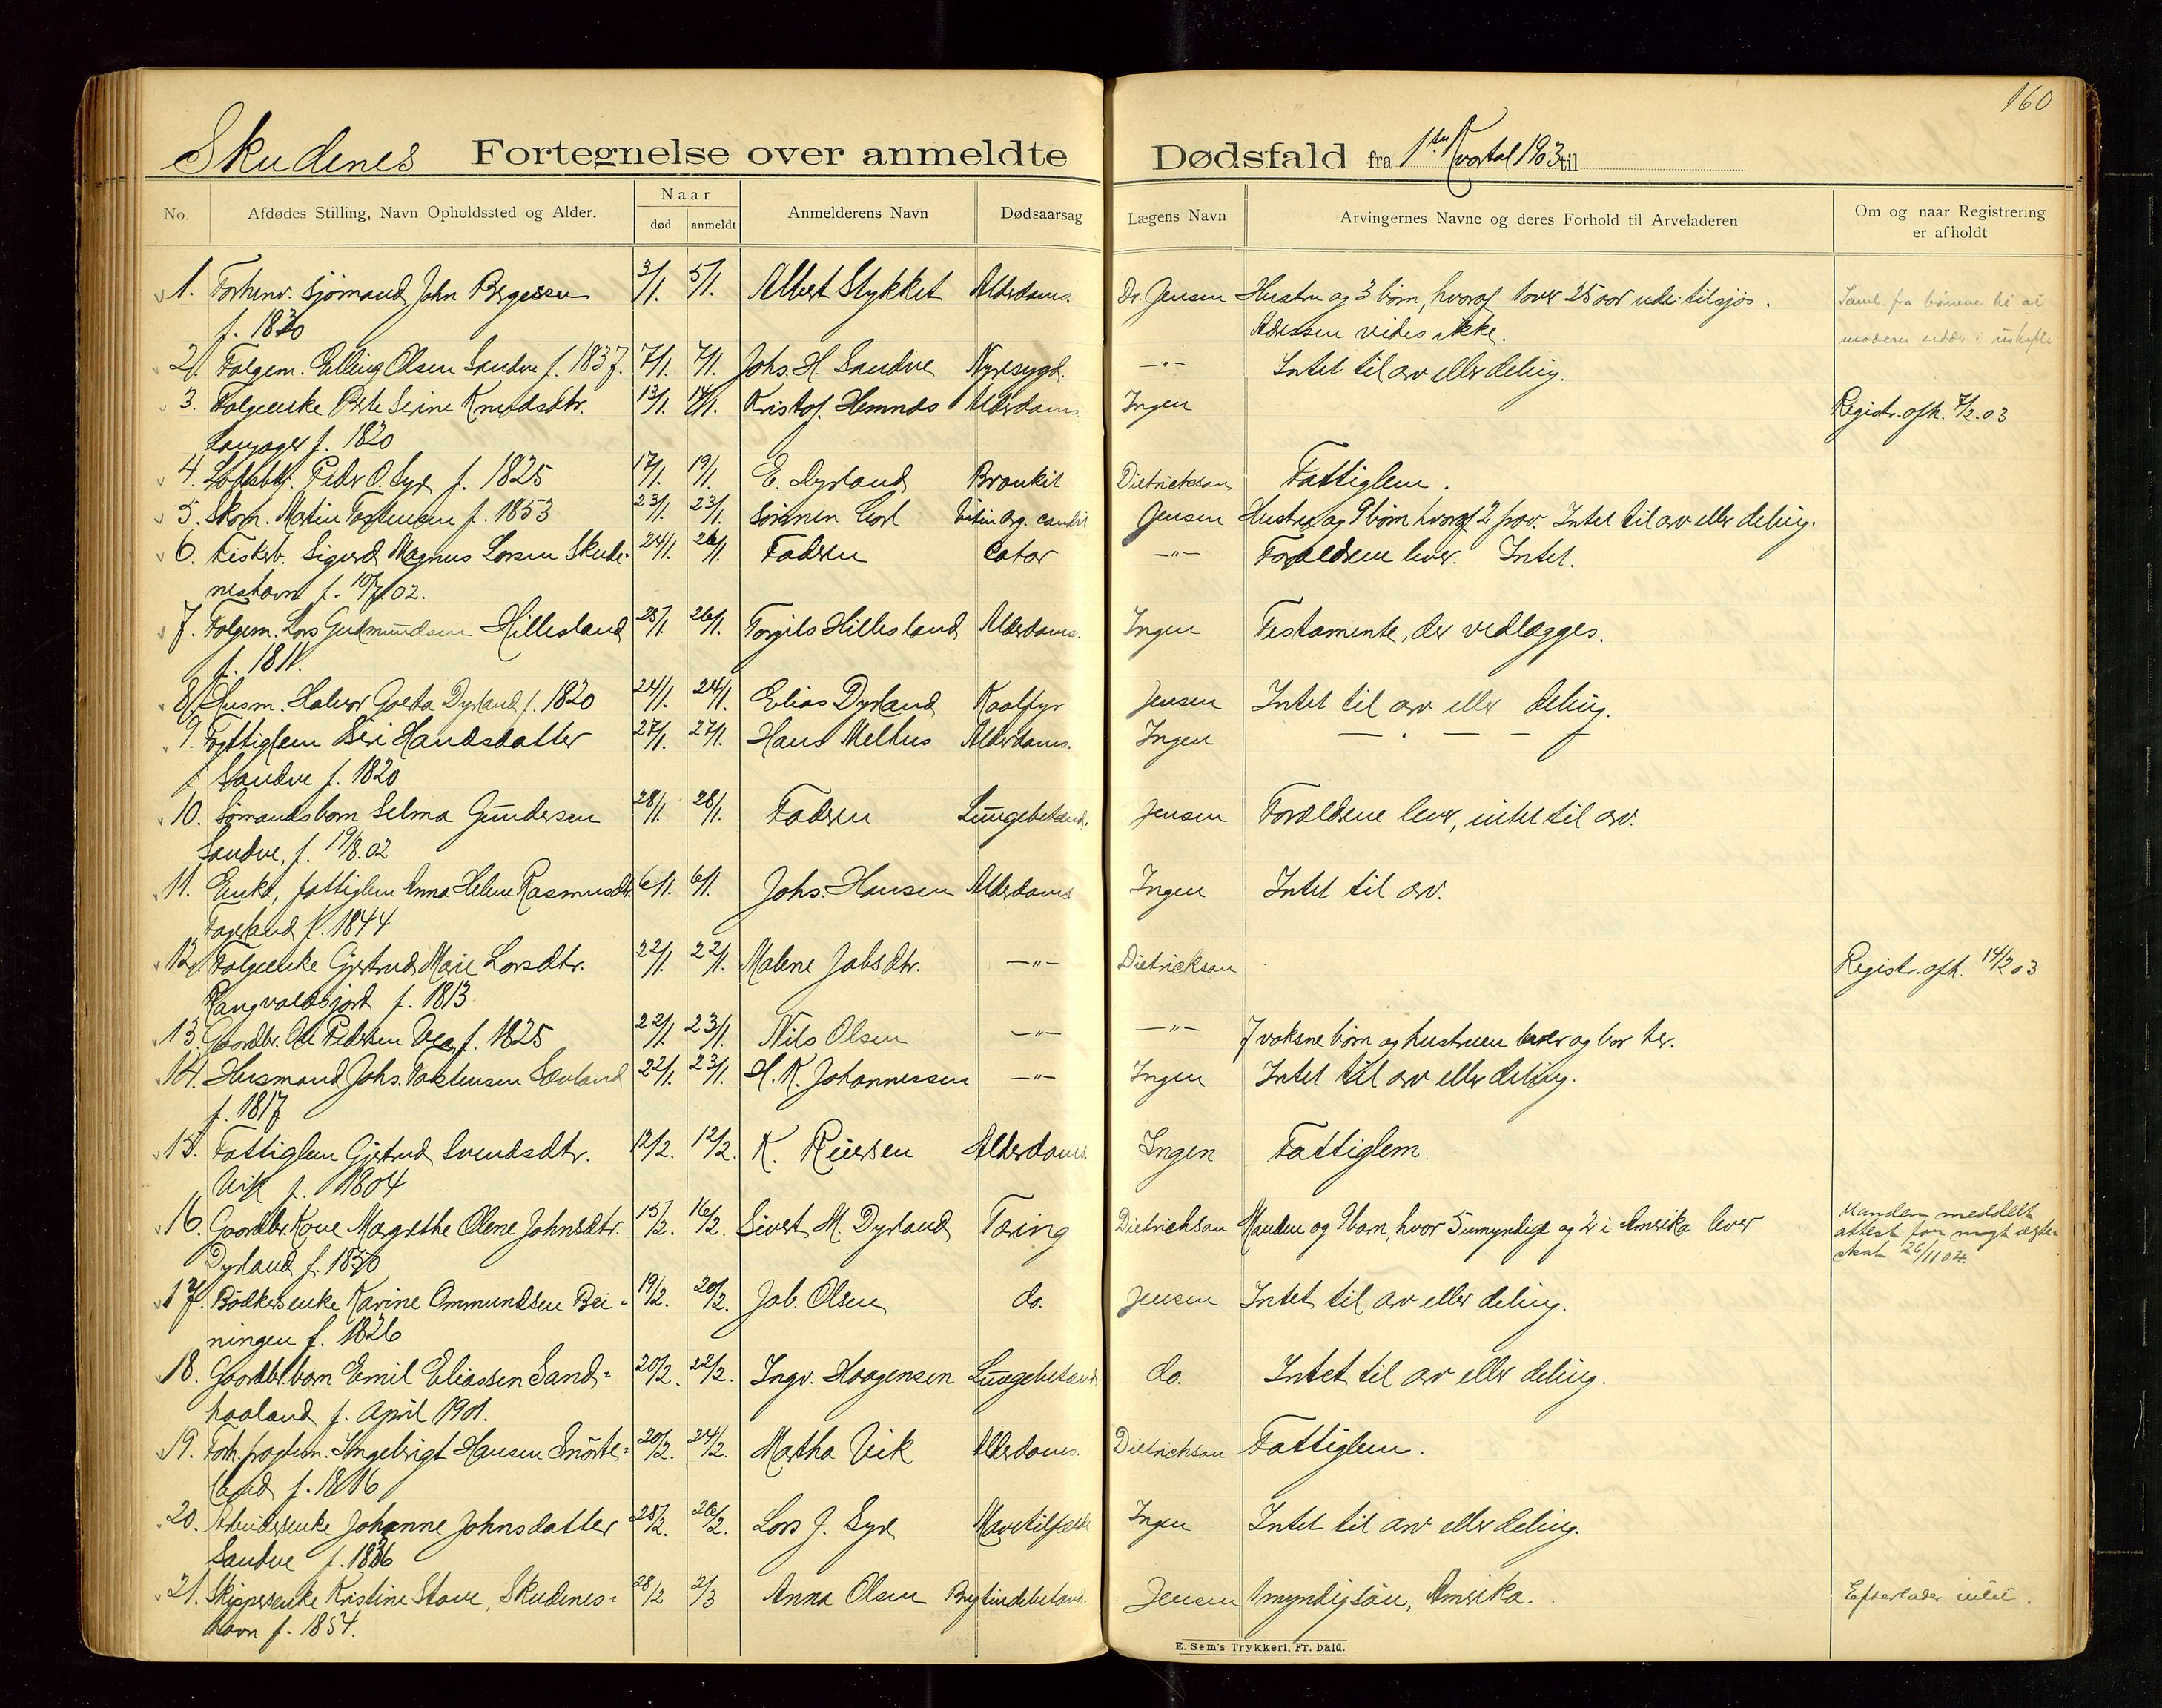 160
Skudenes Fortegnelse over anmeldte Dødsfald fra 1ste Kvartal 1903 til
No. Afdødes Stilling, Navn Opholdssted og Alder. Naar død anmeldt Anmelderens Navn Dødsaarsag Lægens Navn Arvingernes Navne og deres Forhold til Arveladeren Om og naar Registrering er afholdt
1. Forhenv. sjömand John Børgesen 3/1. 5/1. Albert Stykket Alderdoms. Dr. Jensen Hustru og 3 börn, hvoraf 1 over 25 aar ude tilsjös.
f. 1830 Adressen vides ikke.
2. Folgem. Elling Olsen Sandve f. 1837. 7/1. 7/1. Johs. H. Sandve Nyresygd. —"— Intet til arv eller deling.
3. Folgeenke Berte Serine Knudsdtr. 13/1. 14/1. Kristof. Hemnes Alderdoms Ingen Registr. afh. 7/2.03
Langager f. 1820
4. Peder O. Syre f. 1825 17/1. 19/1. E. Dyrland Bronkit Dietrichson Fattiglem.
5. Skom. Martin Torstensen f. 1853 23/1. 23/1. Sörinen Vitium org. cordis Jensen Hustru og 9 börn hvoraf 2 Intet til arv eller deling.
6. Fiskerb. Sigurd Magnus Larsen Skude- 24/1. 26/1. Faderen Catar —"— Forældrene lever. Intet.
neshavn f. 10/7.02.
7. Folgem. Lars Gudmundsen Hillesland 25/1. 26/1. Torgils Hillesland Alderdoms. Ingen Testamente, der vedlægges.
f. 1811.
8. Husm. Halvor Dyrland f. 1820 24/1. 24/1. Elias Dyrland Koldfyr Jensen Intet til arv eller deling.
9. Fattiglem Siri Hansdatter 27/1. 27/1. Hans Melhus Alderdoms. Ingen — " — —
Sandve f. 1820
10. Sømandsbarn Selma Gundersen 28/1. 28/1. Faderen Lungebetænd. Jensen Forældrene lever, intet til arv.
Sandve, f. 19/8.02
11. Enke, fattiglem Anna Helene Rasmusdtr. 6/1. 6/1. Johs. Hansen Alderdoms Ingen Intet til arv.
Fagerland f. 1844
12. Folgeenke Gjertrud Marie Larsdtr. 22/1. 22/1. Malene Jobsdtr. —"— Dietrichson Registr. afh. 14/2 03
Rangvaldsjord f. 1813
13. Gaardbr. Ole Pedersen Vea f. 1825 22/1. 23/1. Nils Olsen —"— —"— 7 voksne börn og hustruen lever og bor her.
14. Husmand Johs. Torstensen Sævland 22/1. 23/1. H. K. Johannessen —"— Ingen Intet til arv eller deling.
f. 1817
15. Fattiglem Gjertrud Svendsdtr. 12/2. 12/2. K. Reiersen Alderdoms. Ingen Fattiglem.
Vik f. 1804
16. Gaardbr. Kone Margrethe Olene Johnsdtr. 15/2. 16/2. Sivert M. Dyrland Tæring Dietrichson Manden og 9 barn, hvor 5 umyndige og 2 i Amerika lever Manden meddelt attest for nyt ægteskab 26/11 04.
Dyrland f. 1850
17. Bødkerenke Karine Ommundsen Bei- 19/2. 20/2. Job. Olsen do. Jensen Intet til arv eller deling.
ningen f. 1826
18. Gaardbr. barn Emil Eliassen Sand- 20/2. 22/2. Ingv. Haagensen Lungebetænd. do. Intet til arv eller deling.
haaland f. April 1901.
19. Ingebrigt Hansen Snörte- 20/2. 24/2. Martha Vik Alderdoms. Dietrichson Fattiglem.
land f. 1816
20. Arbeiderenke Johanne Johnsdatter 25/2. 26/2. Lars J. Syre Mavetilfælde Ingen Intet til arv eller deling.
Sandve f. 1836
21. Skipperenke Kristine Stave, Skudenes- 28/2 2/3 Anna Olsen Brysthindebetænd. Jensen 1 myndig søn, Amerika. Efterlader intet.
havn f. 1854.
E. Sem's Trykkeri, Fr. hald.